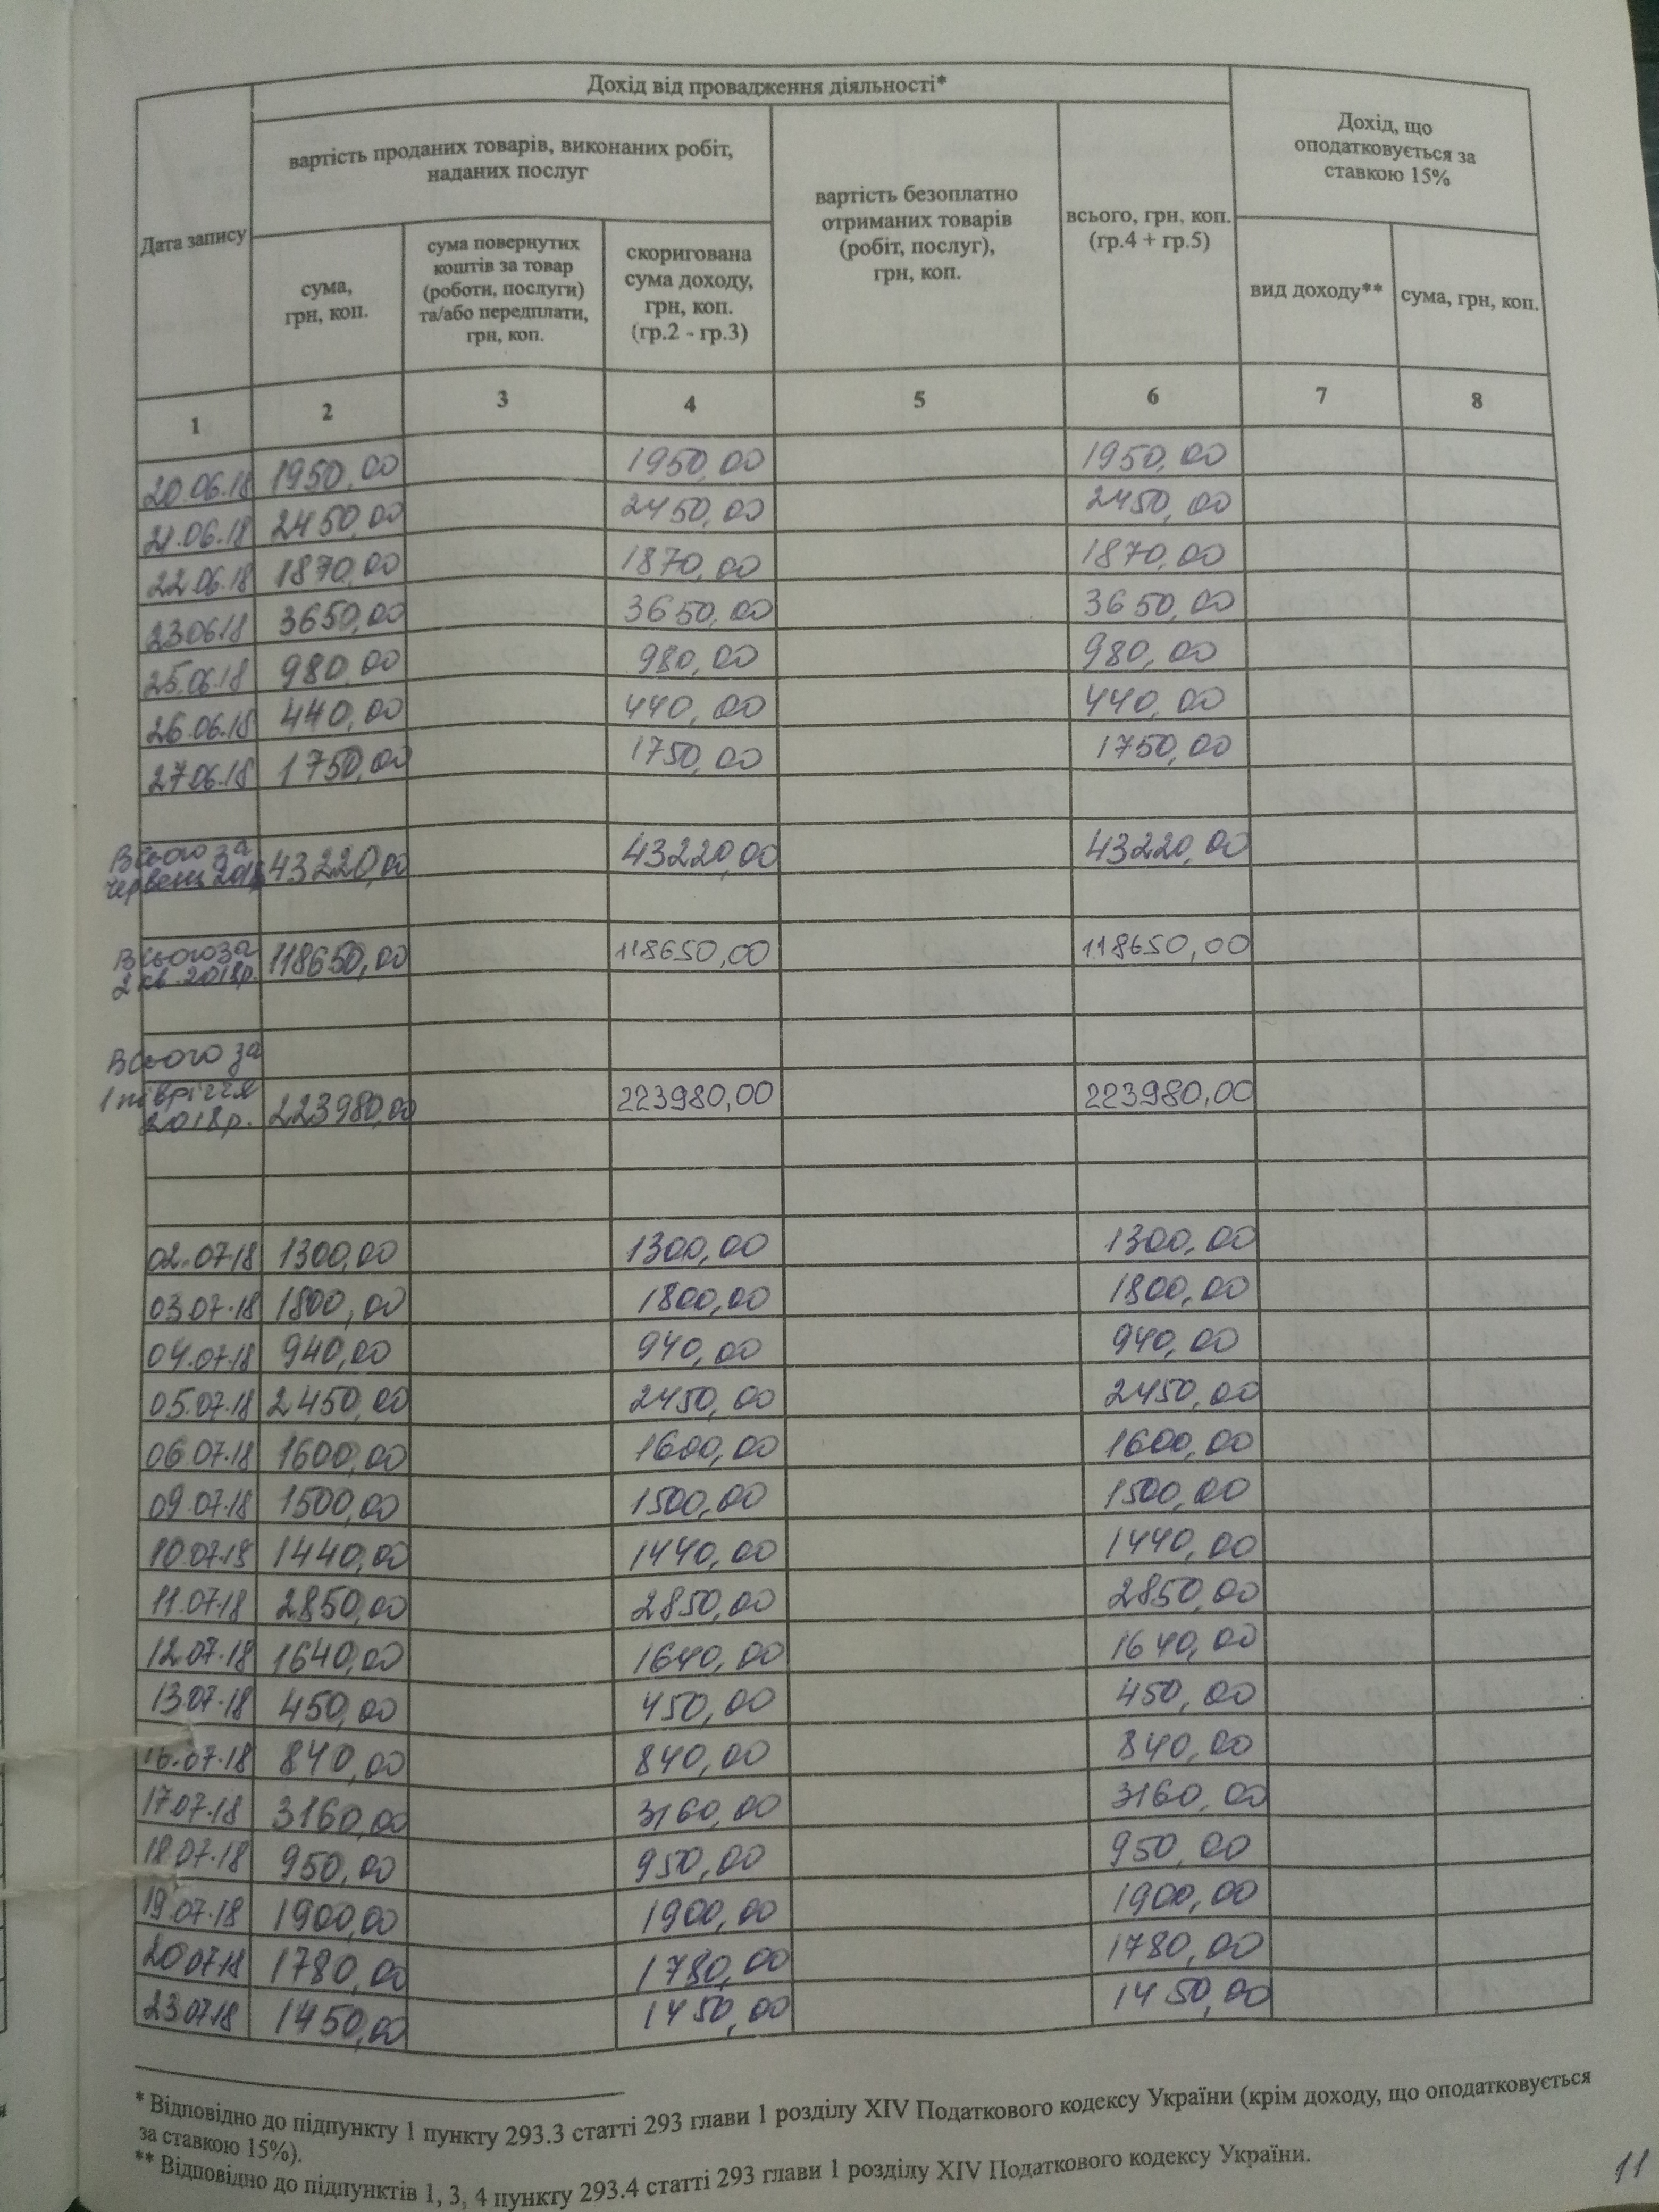 Дохід від провадження діяльності*
Дата запису
вартість проданих товарів, виконаних робіт,
наданих послуг
вартість безоплатно
отриманих товарів
(робіт, послуг),
грн, коп.
всього, грн, коп.
(гр.4 + гр.5)
Дохід, що
оподатковується за
ставкою 15%
сума,
грн, коп.
сума повернутих
коштів за товар
(роботи, послуги)
та/або передплати,
грн, коп.
скоригована
сума доходу,
грн, коп.
(гр.2 - гр.3)
вид доходу**
сума, грн, коп.
1 2 3 4 5 6 7 8
20.06.18 1950,00 1950,00 1950,00
21.06.18 2450,00 2450,00 2450,00
22.06.18 1870,00 1870,00 1870,00
23.06.18 3650,00 3650,00 3650,00
25.06.18 980,00 980,00 980,00
26.06.18 440,00 440,00 440,00
27.06.18 1750,00 1750,00 1750,00
Всього за
червень 2018 43220,00 43220,00 43220,00
Всього за
2 кв. 2018р. 118650,00 118650,00 118650,00
Всього за
1 півріччя
2018р. 223980,00 223980,00 223980,00
02.07.18 1300,00 1300,00 1300,00
03.07.18 1800,00 1800,00 1800,00
04.07.18 940,00 940,00 940,00
05.07.18 2450,00 2450,00 2450,00
06.07.18 1600,00 1600,00 1600,00
09.07.18 1500,00 1500,00 1500,00
10.07.18 1440,00 1440,00 1440,00
11.07.18 2850,00 2850,00 2850,00
12.07.18 1640,00 1640,00 1640,00
13.07.18 450,00 450,00 450,00
16.07.18 840,00 840,00 840,00
17.07.18 3160,00 3160,00 3160,00
18.07.18 950,00 950,00 950,00
19.07.18 1900,00 1900,00 1900,00
20.07.18 1780,00 1780,00 1780,00
23.07.18 1450,00 1450,00 1450,00
* Відповідно до підпункту 1 пункту 293.3 статті 293 глави 1 розділу XIV Податкового кодексу України (крім доходу, що оподатковується
за ставкою 15%).
** Відповідно до підпунктів 1, 3, 4 пункту 293.4 статті 293 глави 1 розділу XIV Податкового кодексу України.
11